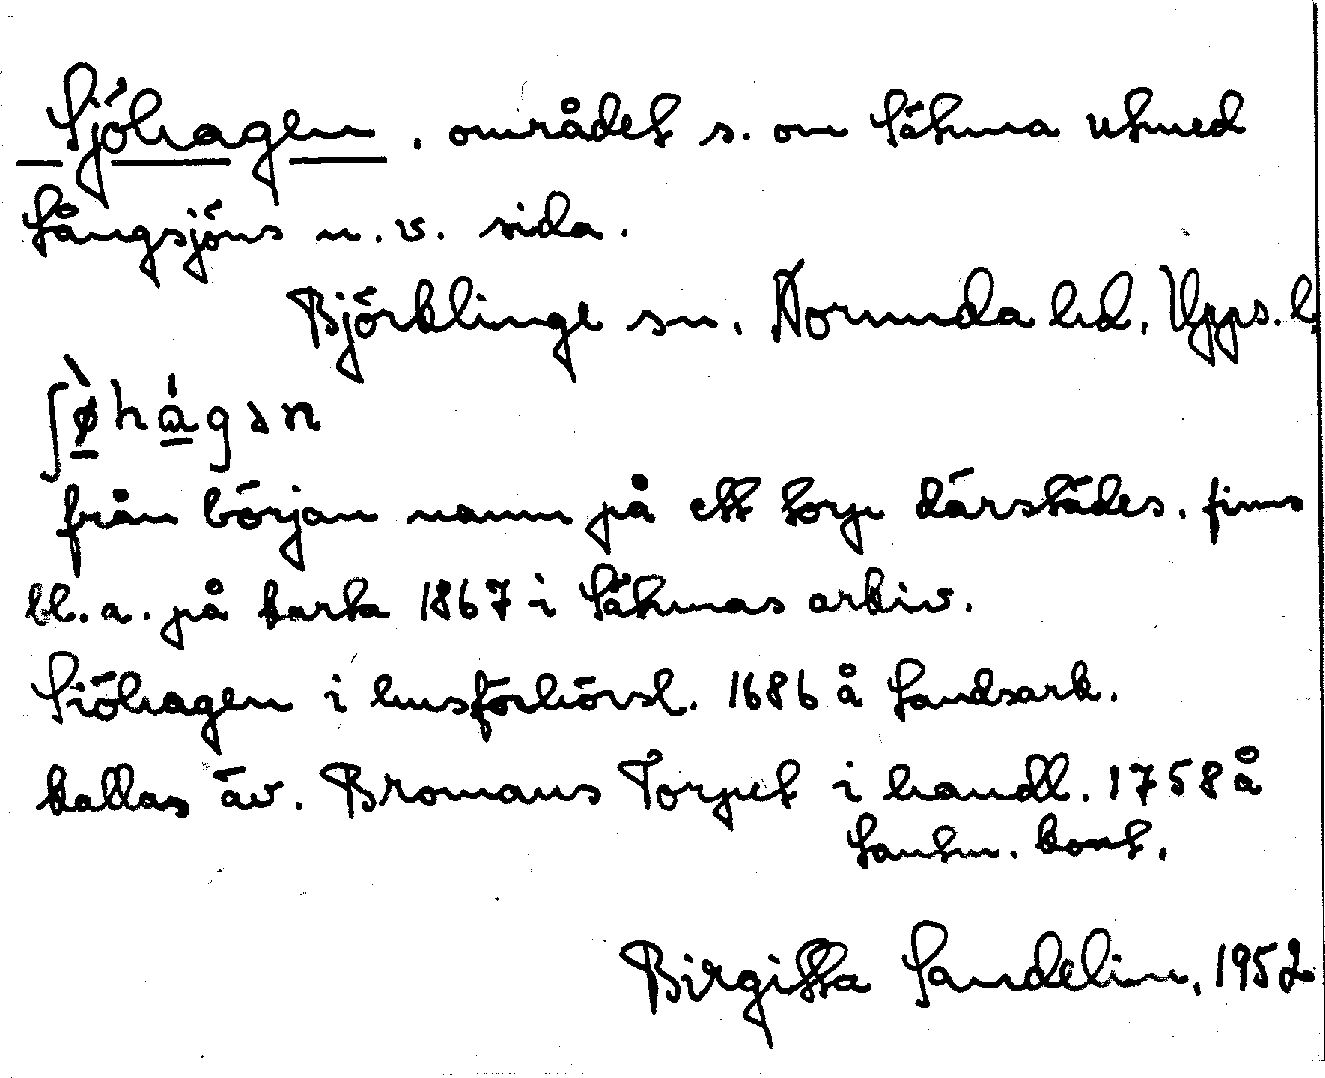 Sjöhagen, området s. om Sätuna utmed
Långsjöns n.v. sida.
Björklinge sn. Norunda hd. Upps. l.
ʃø̀hágən
från början namn på ett torp därstädes. finns
bl.a. på karta 1867 i Sätunas arkiv.
Siöhagen i husförhörsl. 1686 å Landsark.
kallas äv. Bromans Torpet i handl. 1758 å
Lantm. kont.
Birgitta Sandelin, 1952